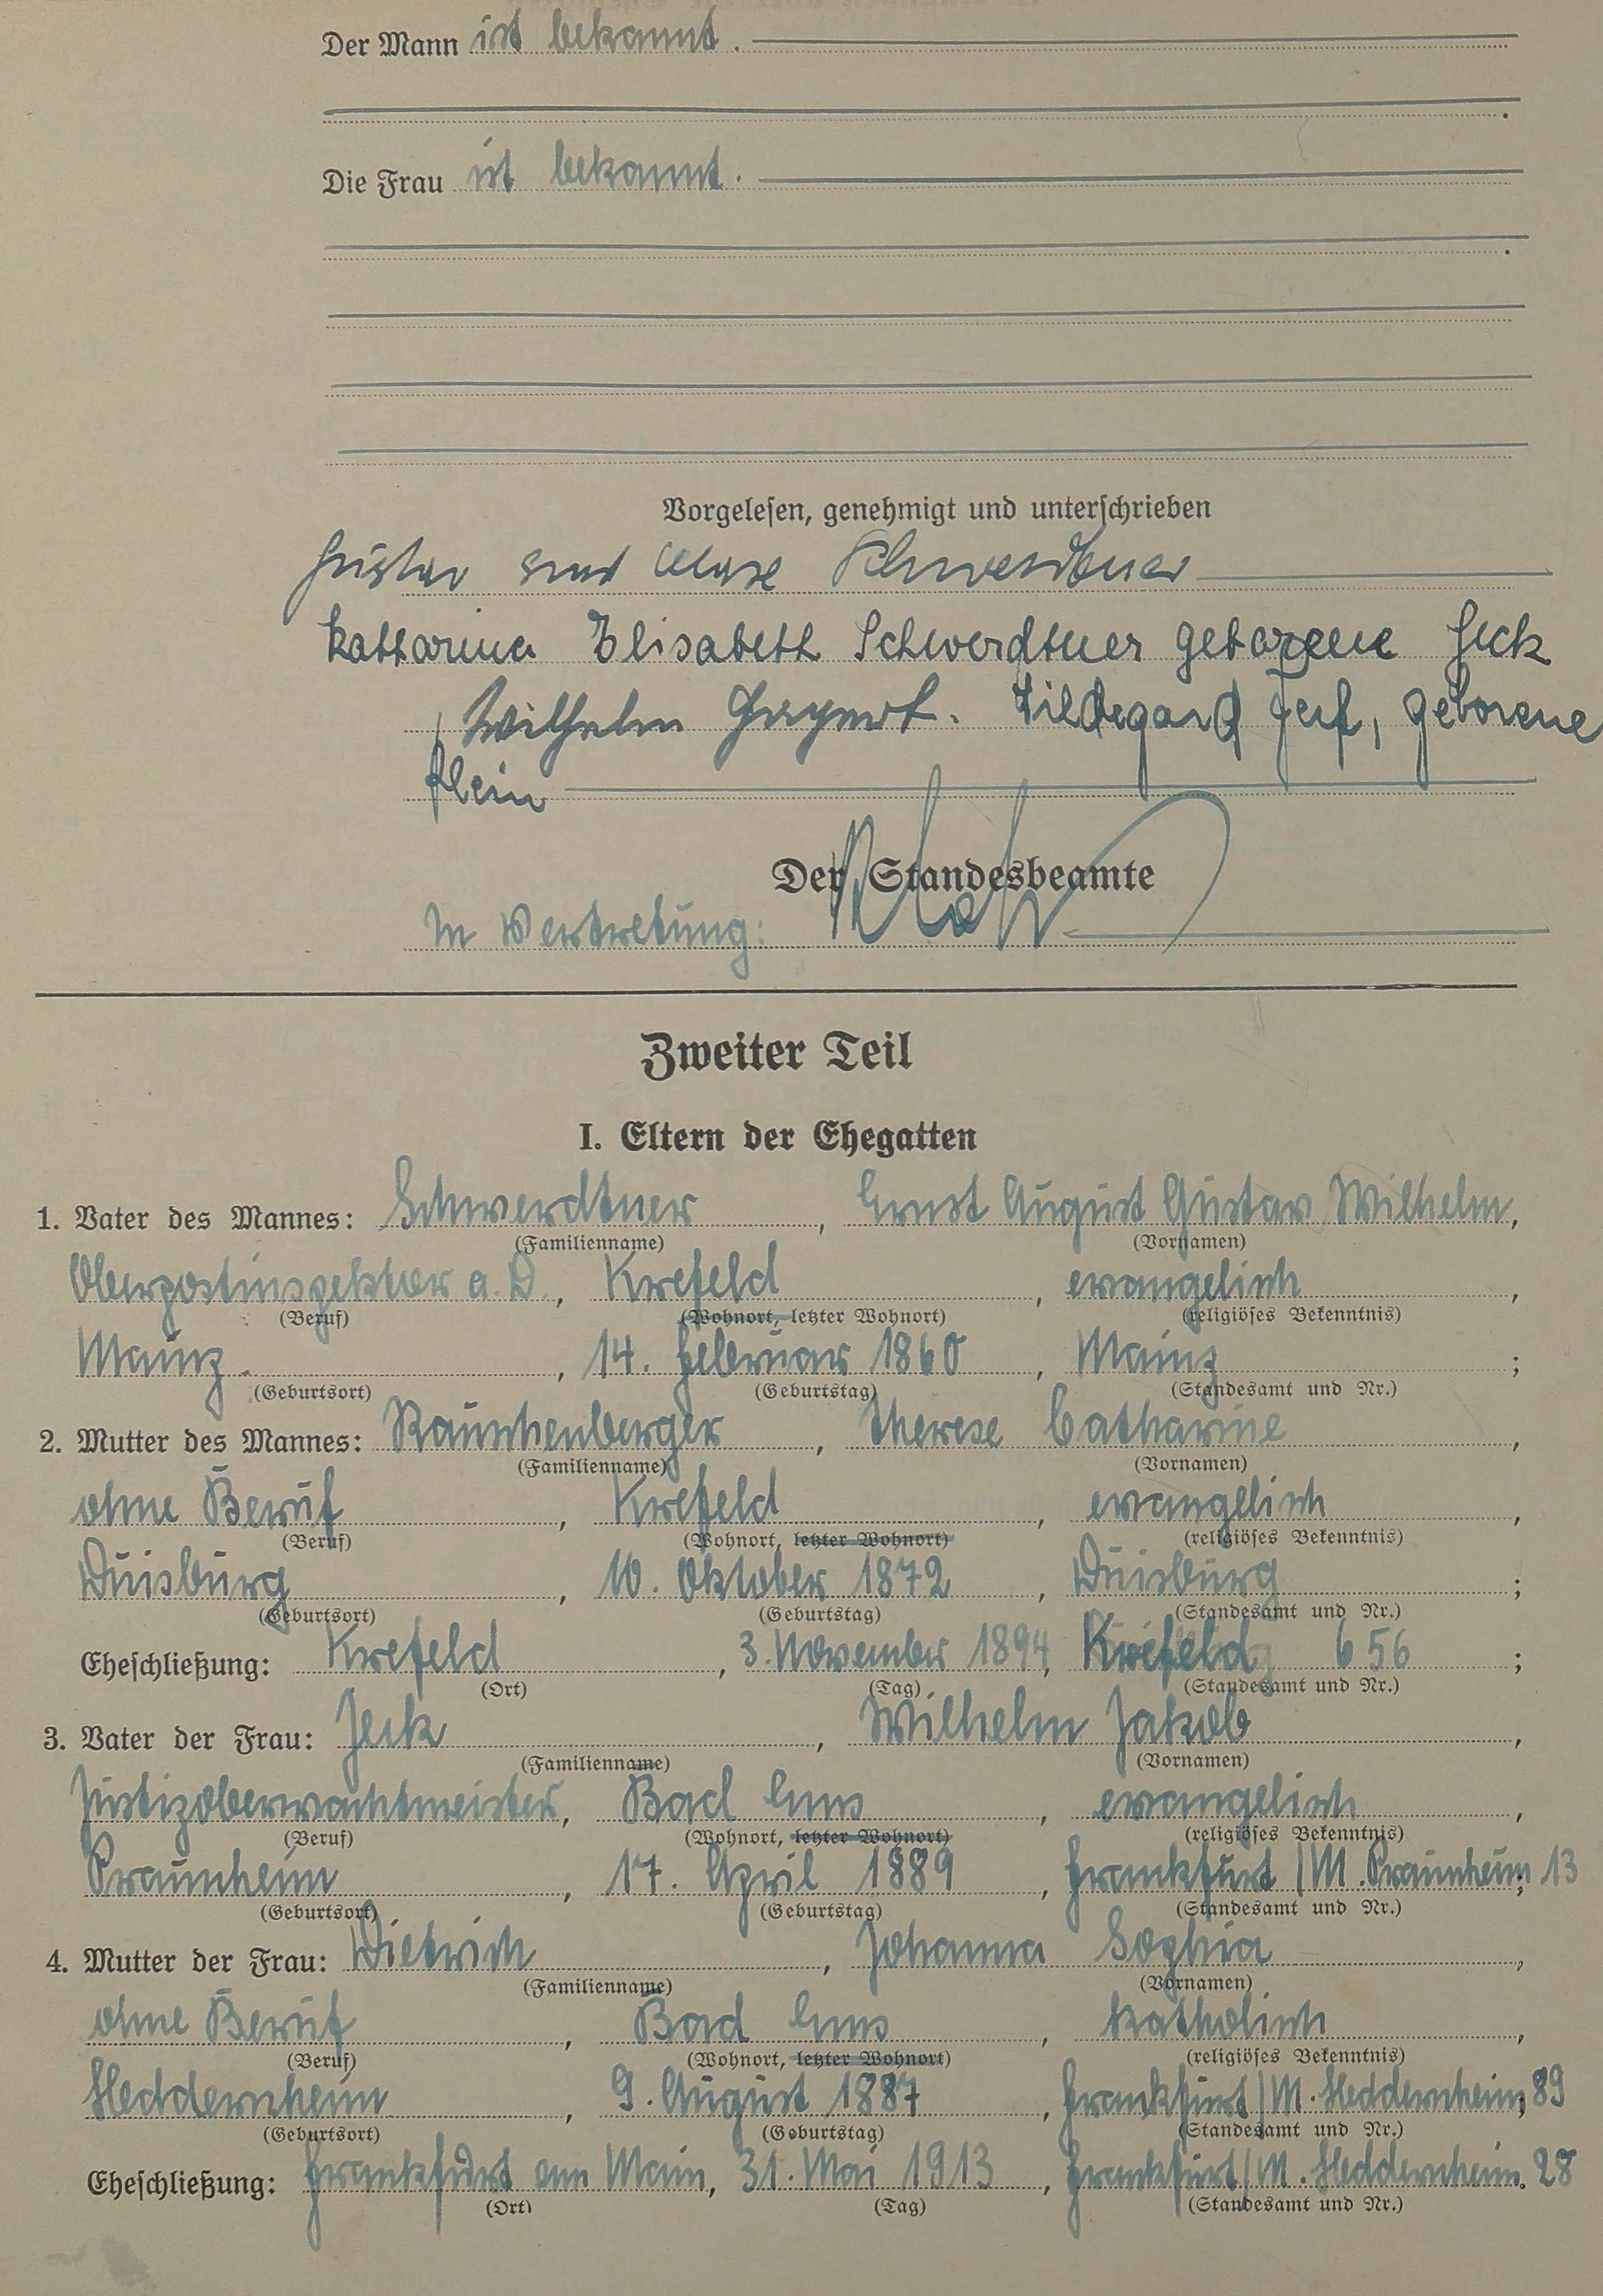 Der Mann ist bekannt.
Die Frau ist bekannt.
Vorgelesen, genehmigt und unterschrieben
Gustav Ernst Schwerdtner
Katharina Elisabeth Schwerdtner geborene Jeck
Wilhelm Hildegard geborene
Klein
Der Standesbeamte
In Vertretung:
Zweiter Teil
I. Eltern der Ehegatten
1. Vater des Mannes: Schwerdtner, Ernst August Gustav Wilhelm,
(Familienname) (Vornamen)
Oberpostinspektor a. D., Krefeld, evangelisch,
(Beruf) (Wohnort, letzter Wohnort) (religiöses Bekenntnis)
Mainz, 14. Februar 1860, Mainz;
(Geburtsort) (Geburtstag) (Standesamt und Nr.)
2. Mutter des Mannes: Rauschenberger, Therese Catharine,
(Familienname) (Vornamen)
ohne Beruf, Krefeld, evangelisch,
(Beruf) (Wohnort, letzter Wohnort) (religiöses Bekenntnis)
Duisburg, 10. Oktober 1872, Duisburg;
(Geburtsort) (Geburtstag) (Standesamt und Nr.)
Eheschließung: Krefeld, 3. November 1894, Krefeld 656;
(Ort) (Tag) (Standesamt und Nr.)
3. Vater der Frau: Jeck, Wilhelm Jakob,
(Familienname) (Vornamen)
Justizoberwachtmeister, Bad Ems, evangelisch,
(Beruf) (Wohnort, letzter Wohnort) (religiöses Bekenntnis)
Praunheim, 17. April 1889, Frankfurt/M. Praunheim; 13
(Geburtsort) (Geburtstag) (Standesamt und Nr.)
4. Mutter der Frau: Dietrich, Johanna Sophia,
(Familienname) (Vornamen)
ohne Beruf, Bad Ems, katholisch,
(Beruf) (Wohnort, letzter Wohnort) (religiöses Bekenntnis)
Heddernheim, 9. August 1887, Frankfurt/M. Heddernheim; 89
(Geburtsort) (Geburtstag) (Standesamt und Nr.)
Eheschließung: Frankfurt am Main, 31. Mai 1913, Frankfurt/M. Heddernheim. 28
(Ort) (Tag) (Standesamt und Nr.)